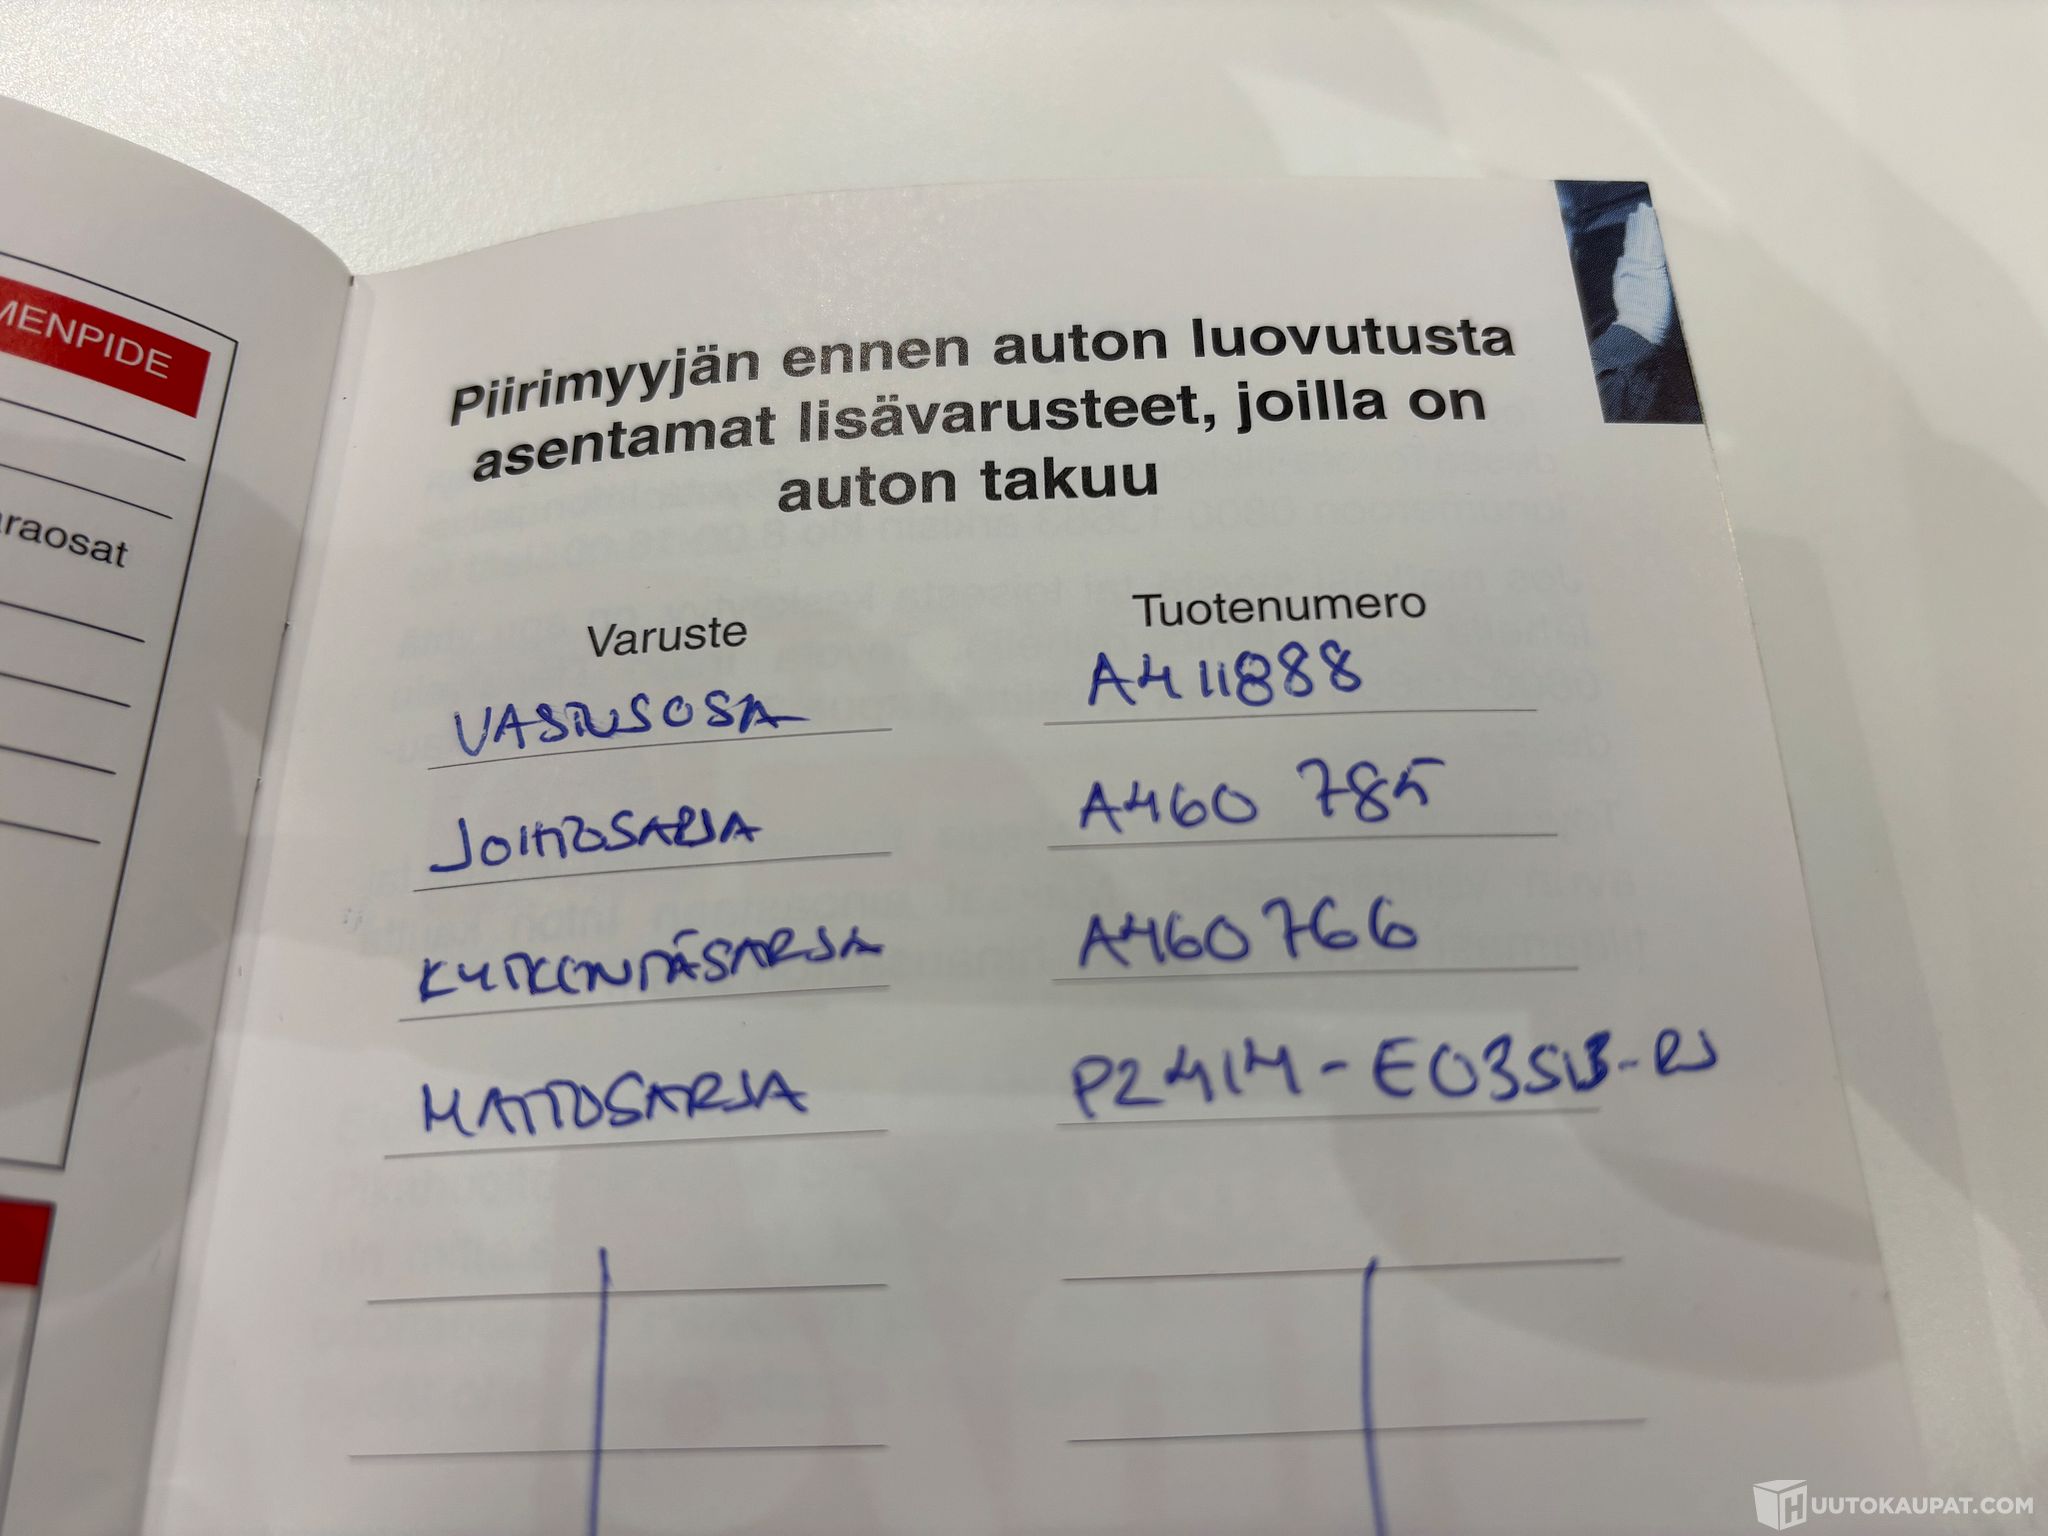 MENPIDE
raosat
Piirimyyjän ennen auton luovutusta
asentamat lisävarusteet, joilla on
auton takuu
Varuste Tuotenumero
VASTUSOSA A411888
JOHTOSARJA A460 785
KYTKENTÄSARJA A460766
MATTOSARJA P2414-E03SB-RJ
HUUTOKAUPAT.COM